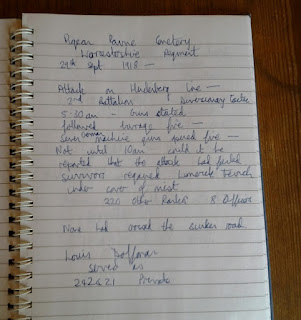 Pigeon Ravine Cemetery
Worcestershire Regiment
29th Sept 1918 —
Attack on Hindenberg Line —
2nd Battalion Diversionary tactic
5-30am - Guns started
followed barrage fire —
German machine guns poured fire —
Not until 10am could it be
reported that the attack had failed
survivors regained Limerick Trench
under cover of mist
220 Other Ranks 8 Officers
None had crossed the sunken road.
Louis
served as
242621 Private